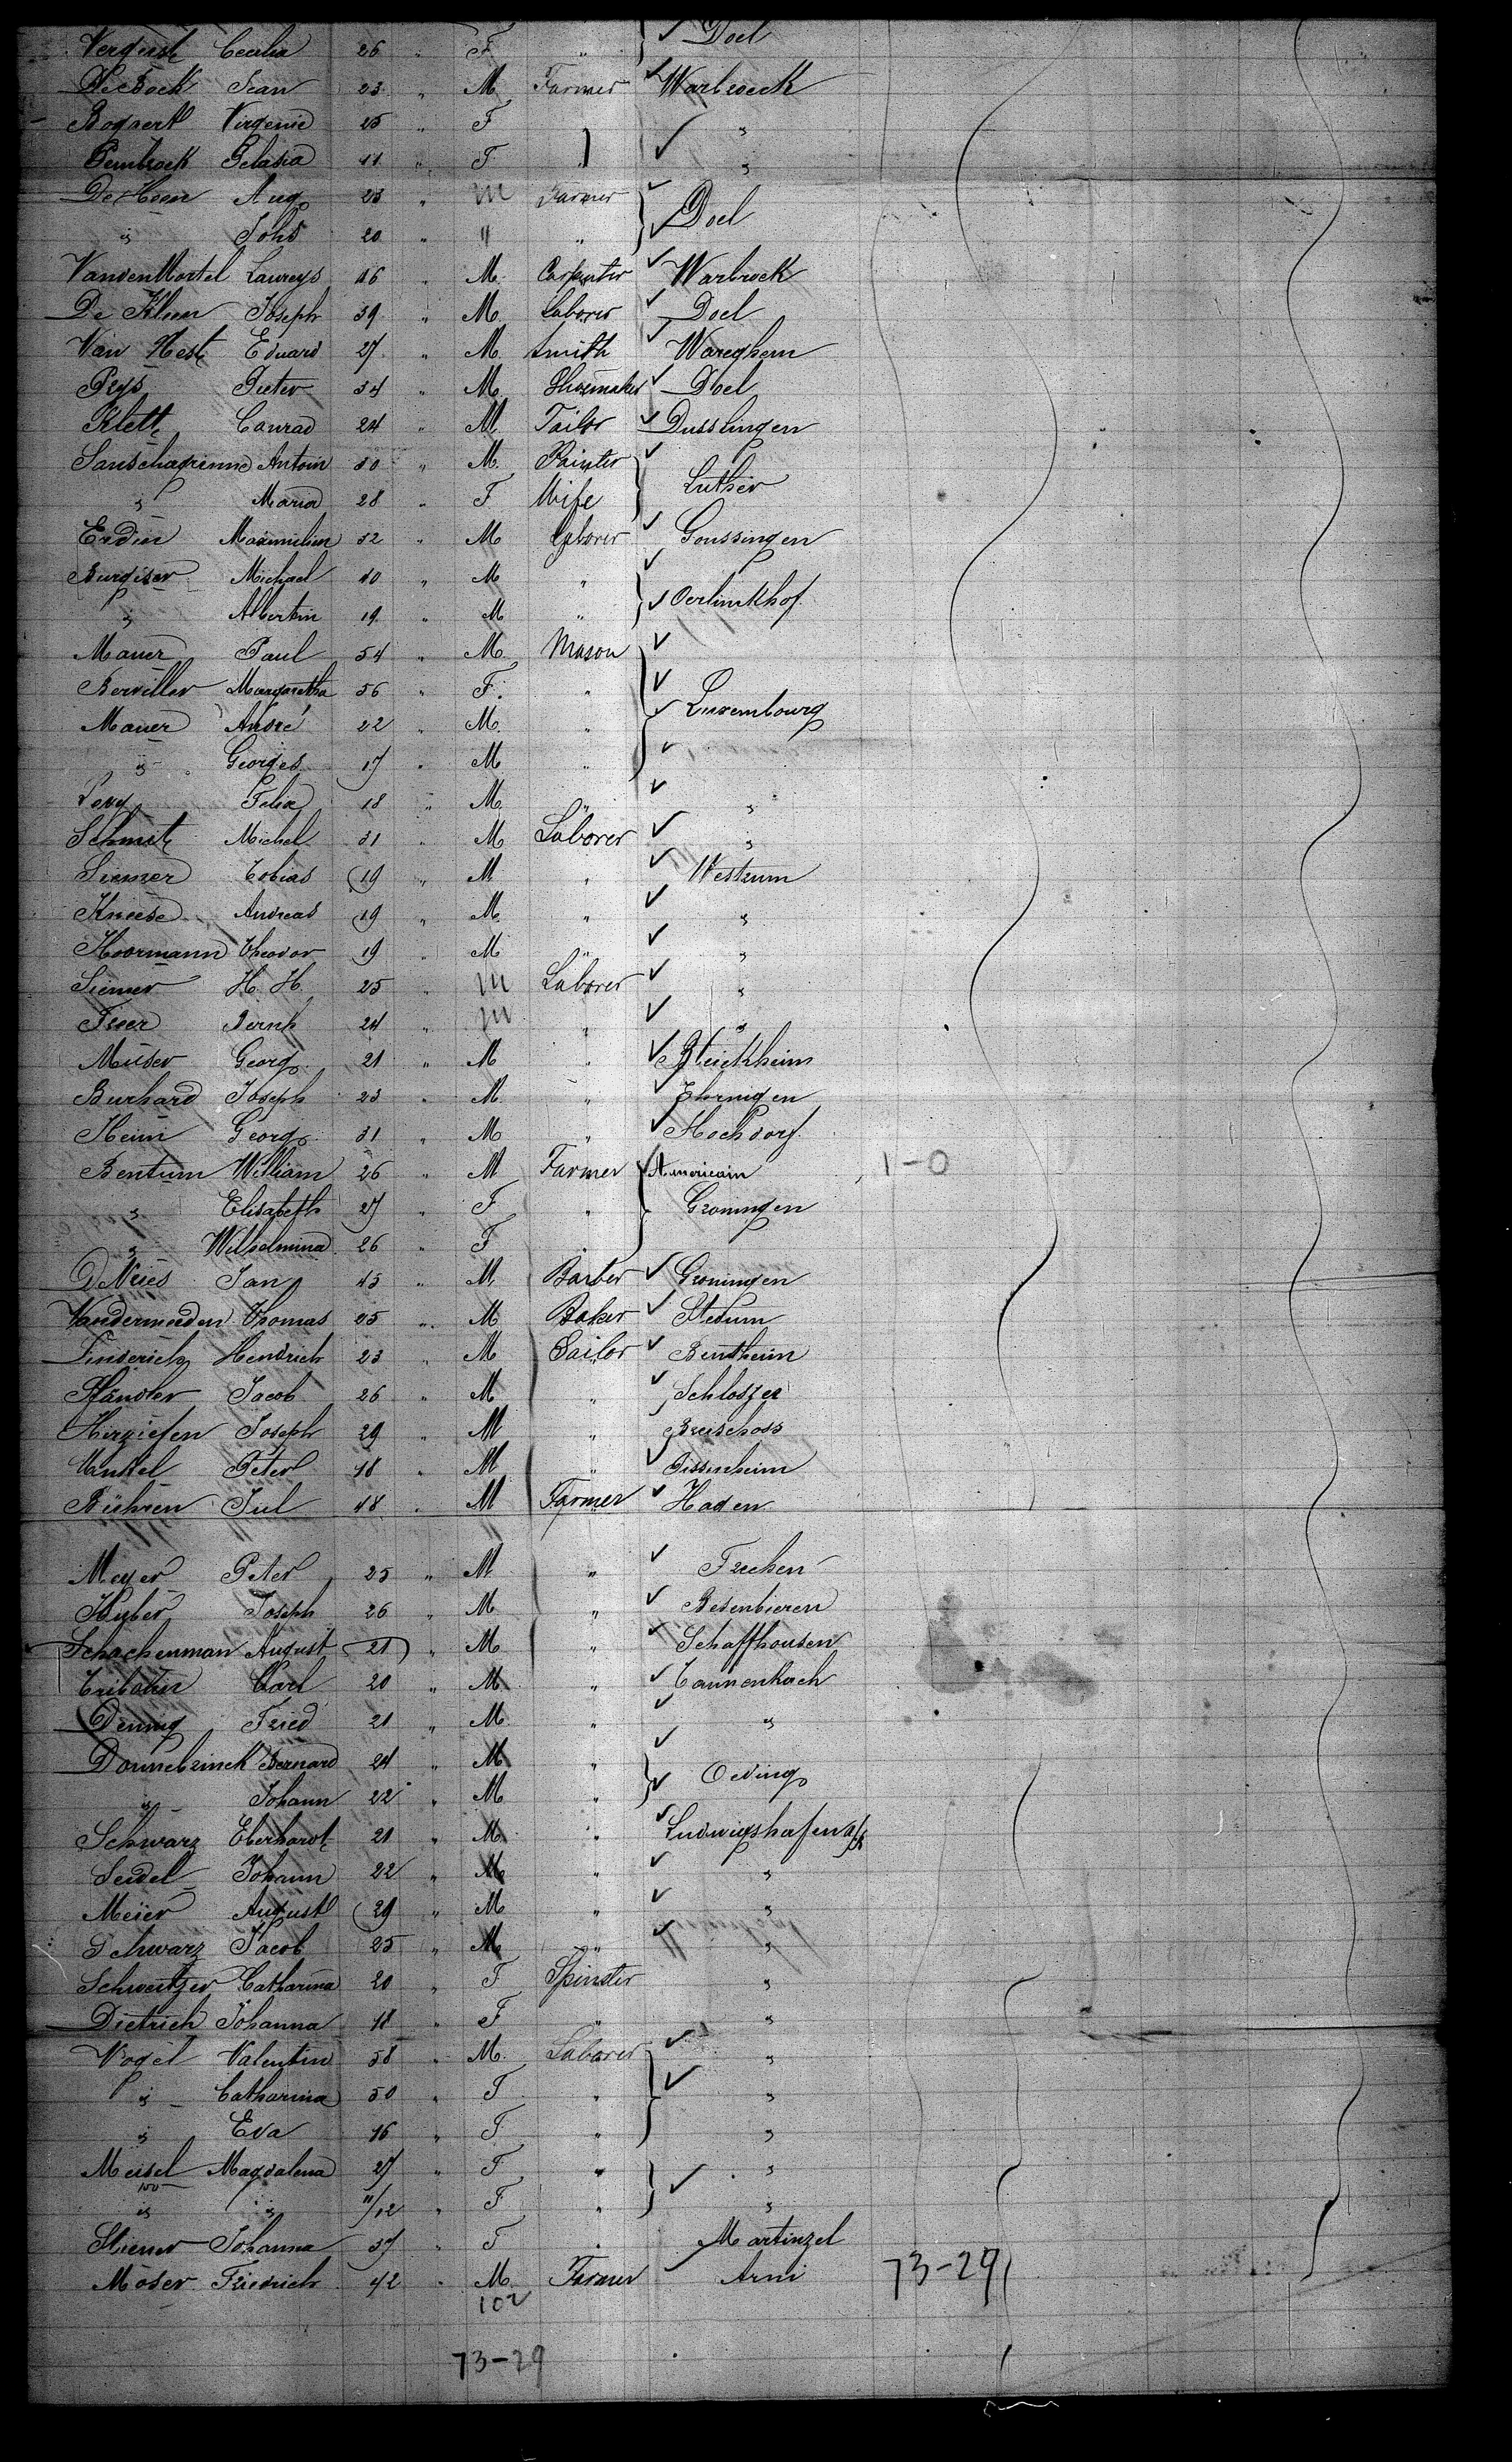 Vergust Cecilia 26 " F " Doel
DeBock Jean 23 " M Farmer Warbroeck
Bogaert Virgenie 25 " F "
Pembroek Pelasia 11 " F " "
De Hoon Aug. 23 " M Farmer
" Johs 20 " " " Doel
VandenMortel Laureys 46 " M. Carpenter Warbroek
De Kleen Joseph 39 " M. Laborer Doel
Van Heste Eduard 27 " M. Smith Wareghem
Prys Pieter 34 " M. Shoemaker Doel
Klett Conrad 24 " M. Tailor Dusslingen
Sanschagrienne Antoin 30 " M. Painter
" Maria 28 " F Wife Luthier
Erdin Maximilien 32 " M Laborer Goussingen
Burgiser Michael 40 " M "
" Albertin 19 " M " Oerlinckhof
Mauer Paul 54 " M. Mason
Berviller Margaretha 56 " F. "
Mauer André 22 " M. " Luxembourg
" Georges 17 " M "
Levy Felix 18 " M. " "
Schmit Michel 31 " M Laborer "
Siemer Tobias 19 " M " Westrum
Kniese Andreas 19 " M. " "
Hoormann Theodor 19 " M " "
Siemer H. H. 25 " M Laborer "
Bernh 24 " M " "
Muser Georg 21 " M " Bleickheim
Burhard Joseph 23 " M. " Ehringen
Heim Georg 31 " M " Hochdorf
Bentum William 26 " M Farmer Americain 1-0
" Elisabeth 27 " F " Groningen
" Wilhelmina 26 " F "
DeVries Jan 43 " M. Barber Groningen
Vandermeeden Thomas 25 " M Baker Stedum
Finderich Hendrich 23 " M Sailor Bentheim
Pfandler Jacob 26 " M " Schlosser
Hirziefen Joseph 29 " M " Breischoss
Unkel Peter 18 " M " Dissenheim
Bühren Jul 48 " M Farmer Hagen
Meyer Peter 25 " M " Frechen
Huber Joseph 26 " M " Besenbieren
Schachenman August 21 " M " Schaffhousen
Carl 20 " M " Tannenbach
Denniq Fried 21 " M. " "
Donnebrinck Bernard 24 " M "
" Johann 22 " M " Oeding
Schwarz Eberhardt 21 " M " Ludwigshafen a/R
Seidel Johann 22 " M " "
Meier August 29 " M " "
Schwarz Jacob 25 " M " "
Schweitzer Catharina 20 " F Spinster "
Dietrich Johanna 18 " F " "
Vogel Valentin 58 " M. Laborer "
" Catharina 50 " F " "
" Eva 16 " F. " "
Meisel Magdalena 27 " F " "
100
" " 11/12 " F " "
Johanna 37 " F " Martinzel
Moser Friedrich 42 " M. Farmer Arni 73-29
102
73-29